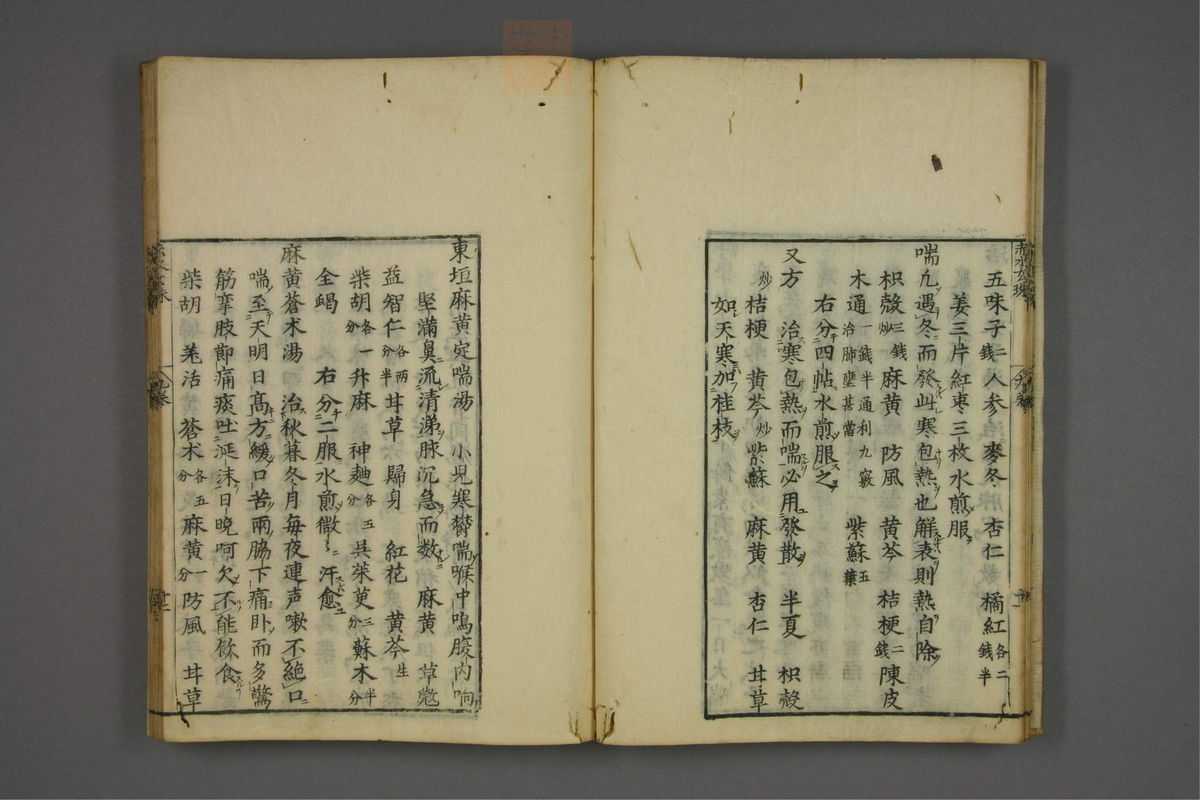 五味子二錢 人参 麥冬 杏仁 橘紅各二錢半
姜三片紅枣三枚水煎服
喘凢遇冬而發此寒包熱也解表則熱自除
枳殼炒三錢 麻黄 防風 黄芩 桔梗二錢 陳皮
木通一錢半通利九竅治肺壅甚當 紫蘇五葉
右分四帖水煎服之
又方 治寒包熱而喘必用發散 半夏 枳殼
炒 桔梗 黄芩炒 紫蘇 麻黄 杏仁 甘草
如天寒加桂枝
東垣麻黄定喘湯 小児寒欝喘喉中鳴腹内响
堅滿鼻流清涕脉沉急而数 麻黄 草蔲
益智仁各兩分半 甘草 歸身 紅花 黄芩生
柴胡各一分 升麻 神麯各五分 呉茱萸三分 蘇木半分
全蝎 右分二服水煎微〻汗愈
麻黄蒼朮湯 治秋暮冬月毎夜連声嗽不絶口
喘至天明日高方緩口苦兩脇下痛卧而多驚
筋攣肢節痛痰吐涎沫日晚呵欠不能飲食
柴胡 羗活 蒼朮各五分 麻黄一分 防風 甘草